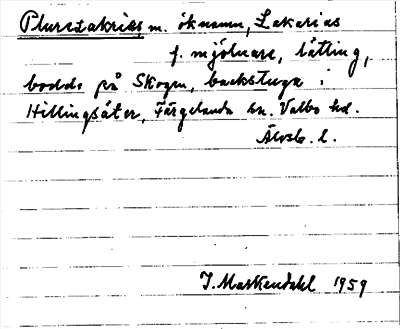 Plurezakris m. öknamn, Zakarias
f. mjölnare, lätting,
bodde på Skogen, backstuga i
Hillingsäter, Färgelanda sn. Valbo hd.
Älvsb. l.
J. Markendahl 1959